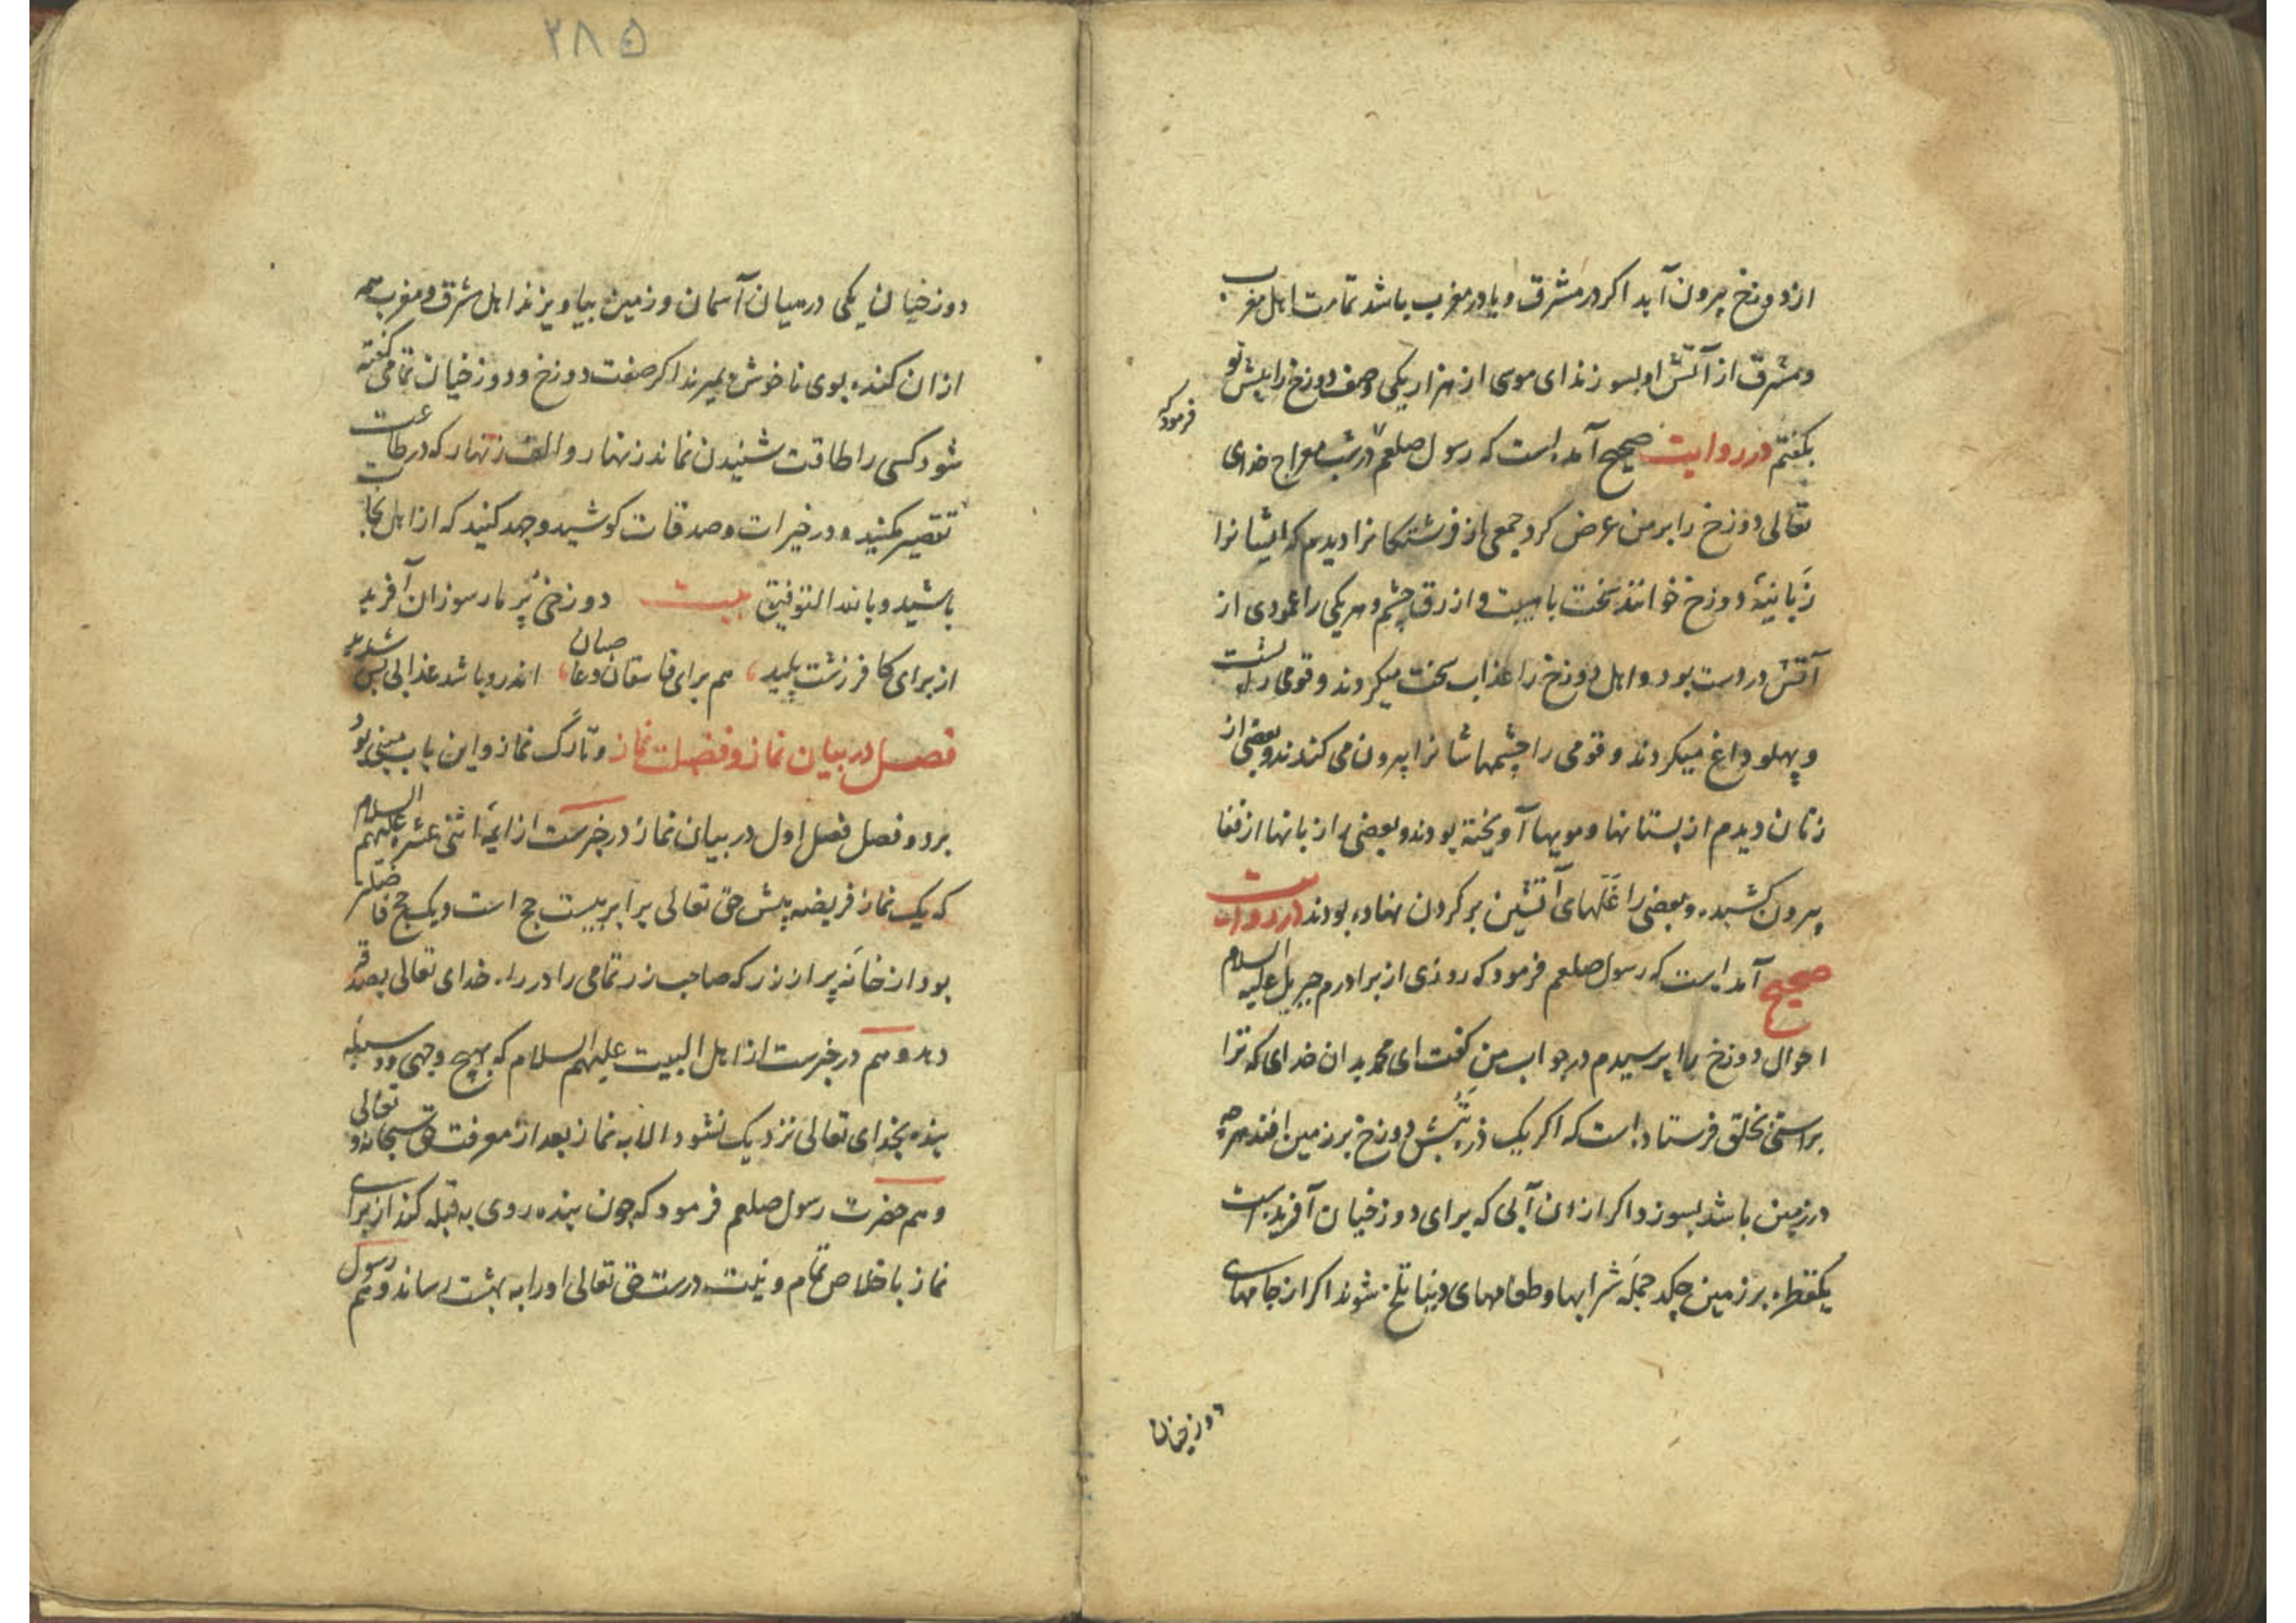 از دوزخ بیرون آید اکر در مشرق و یا در مغرب باشد تمامت اهل مغرب
و مشرق از آتش او بسوزند ای موسی از هزار یکی وصف دوزخ را پیش تو
بکفتم در روایت صحیح آمده است که رسول صلعم در شب معراج خدای
فرمود که
تعالی دوزخ را بر من عرض کرد جمعی از فرشتکانرا دیدم که ایشانرا
زبانیهٔ دوزخ خوانند سخت با هیبت و ازرق چشم و هر یکی را عمودی از
آتش در دست بود و اهل دوزخ را عذاب سخت میکردند و قومی را پشت
و پهلو داغ میکردند و قومی را چشمهاشانرا بیرون می کندند و بعضی از
زنان دیدم از پستانها و مویها آویخته بودند و بعضی را زبانها از قفا
بیرون کشیده و بعضی را غلهای آتشین بر کردن نهاده بودند در روایت
صحیح آمده است که رسول صلعم فرمود که روزی از برادرم جبریل علیه السلام
احوال دوزخ را پرسیدم در جواب من کفت ای محمد بدان خدای که ترا
براستی بخلق فرستاده است که اکر یک ذره تبش دوزخ بر زمین افتد هرچه
در زمین باشد بسوزد و اکر از ان آبی که برای دوزخیان آفریده است
یکقطره بر زمین چکد جملهٔ شرابها و طعامهای دنیا تلخ شوند اکر از جامهای
دوزخیان
۲۸۵
دوزخیان یکی در میان آسمان و زمین بیاویزند اهل مشرق و مغرب همه
از ان کنده بوی ناخوش بمیرند اکر صفت دوزخ و دوزخیان تمامی کفته
شود کسی را طاقت شنیدن نماند زنهار و الف زنهار که در طاعت
تقصیر مکنید و در خیرات و صدقات کوشید و جهد کنید که از اهل نجات
باشید و بالله التوفیق بیت دوزخی پر مار سوزان آفرید
از برای کافر زشت پلید هم برای فاسقان و عاصیان اندرو باشد عذابی بس شدید
فصل در بیان نماز و فضلت نماز و تارک نماز و این باب مبنی بود
بر دو فصل فصل اول در بیان نماز در خبرست از ایمهٔ اثنی عشره علیهم السلام
که یک نماز فریضه پیش حق تعالی برابر بیست حج است و یک حج فاضلتر
بود از خانهٔ پر از زر که صاحب زر تمامی را در راه خدای تعالی بصدقه
دهد و هم در خبرست از اهل البیت علیهم السلام که بهیچ وجهی و وسیله
بنده بخدای تعالی نزدیک نشود الا به نماز بعد از معرفت حق سبحانه و تعالی
و هم حضرت رسول صلعم فرمود که چون بنده روی به قبله کند از برای
نماز باخلاص تمام و نیت درست حق تعالی او را به بهشت رساند و هم رسول